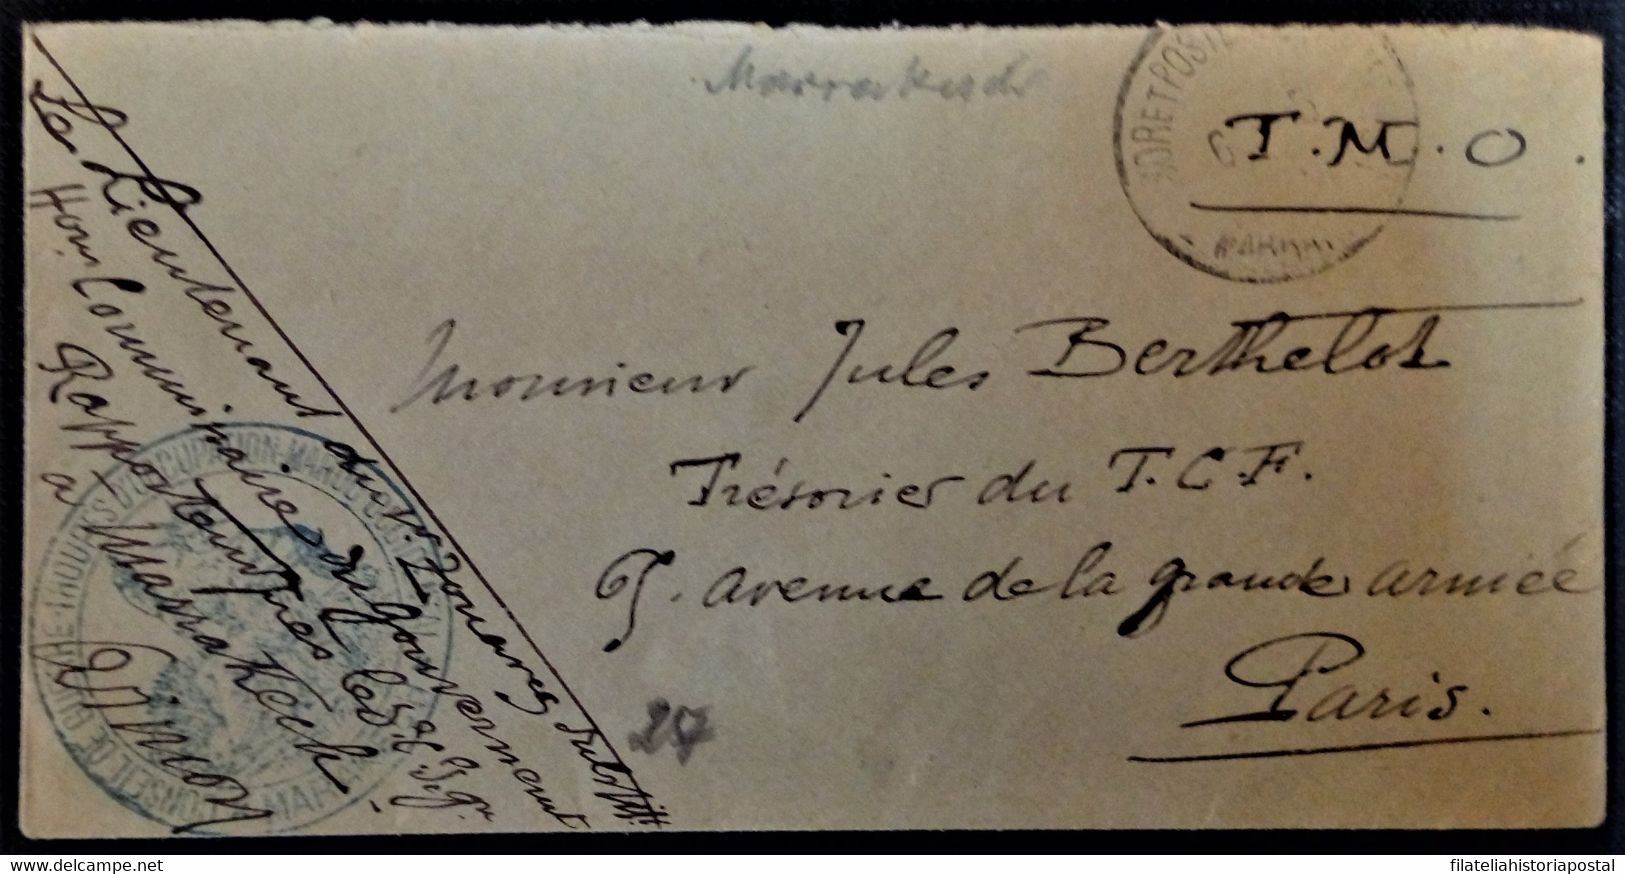 Marrakech
TRESOR ET POSTES
T.M.O.
MARRAKECH
Monsieur Jules Berthelot
Trésorier du T.C.F.
65. avenue de la grande armée
Paris.
27
Le Lieutenant du 1er Zouaves
Hon: Commissaire du gouvernement
Rapporteur près le
à Marrakech
CONSEIL DE GUERRE TROUPES D'OCCUPATION MAROC OCCIDENTAL
delcampe.net
filateliahistoriapostal